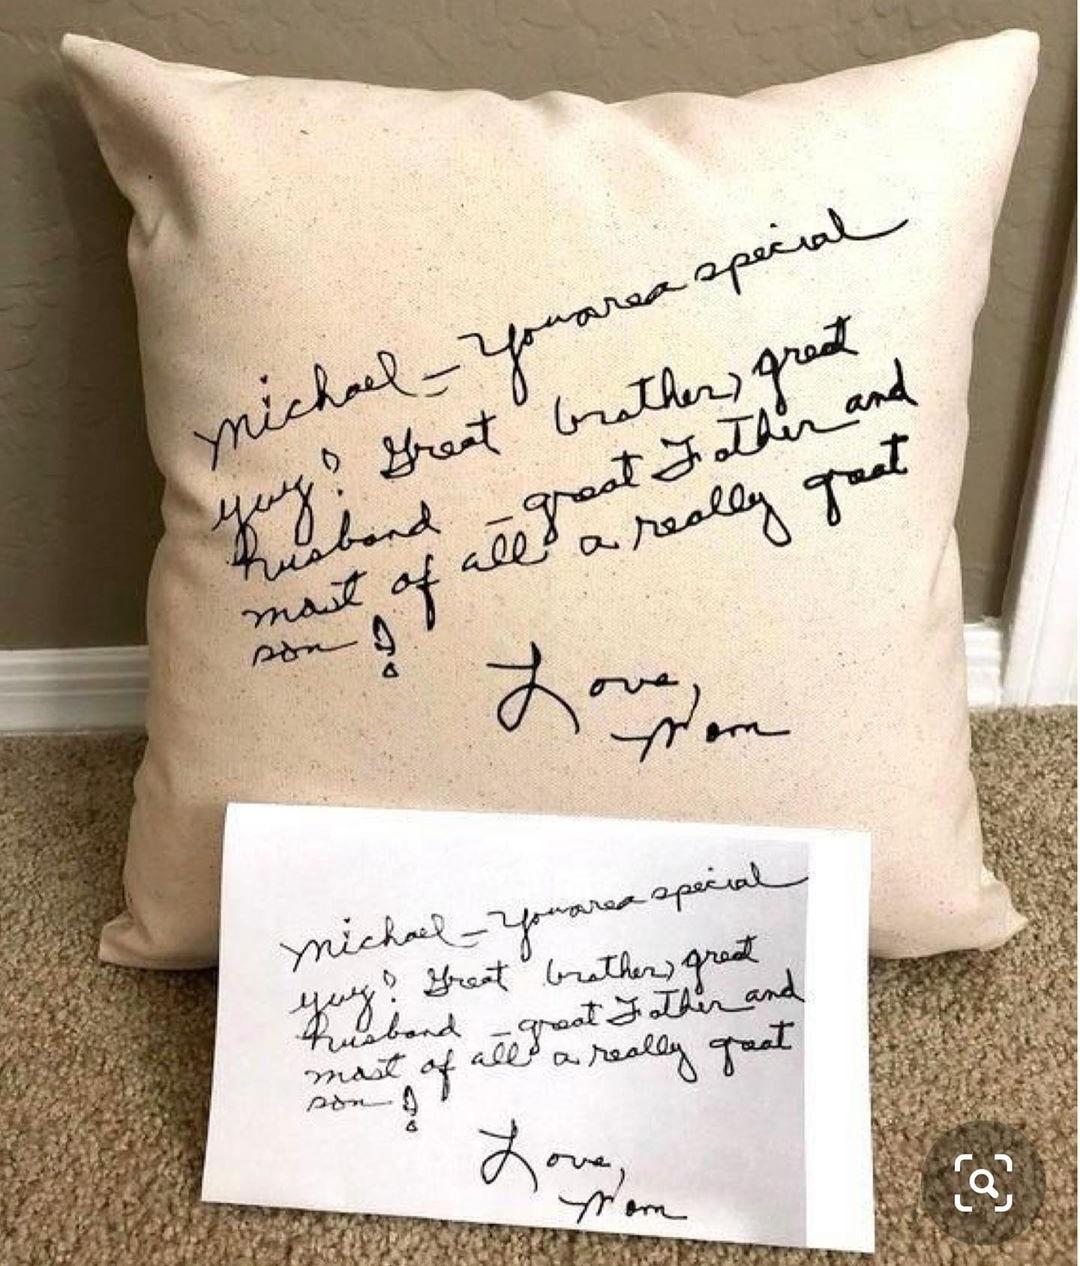 Michael - You are a special
guy! Great brother, great
husband - great Father and
most of all a really great
son!
Love,
Mom
Michael - You are a special
guy! Great brother, great
husband - great Father and
most of all a really great
son!
Love,
Mom